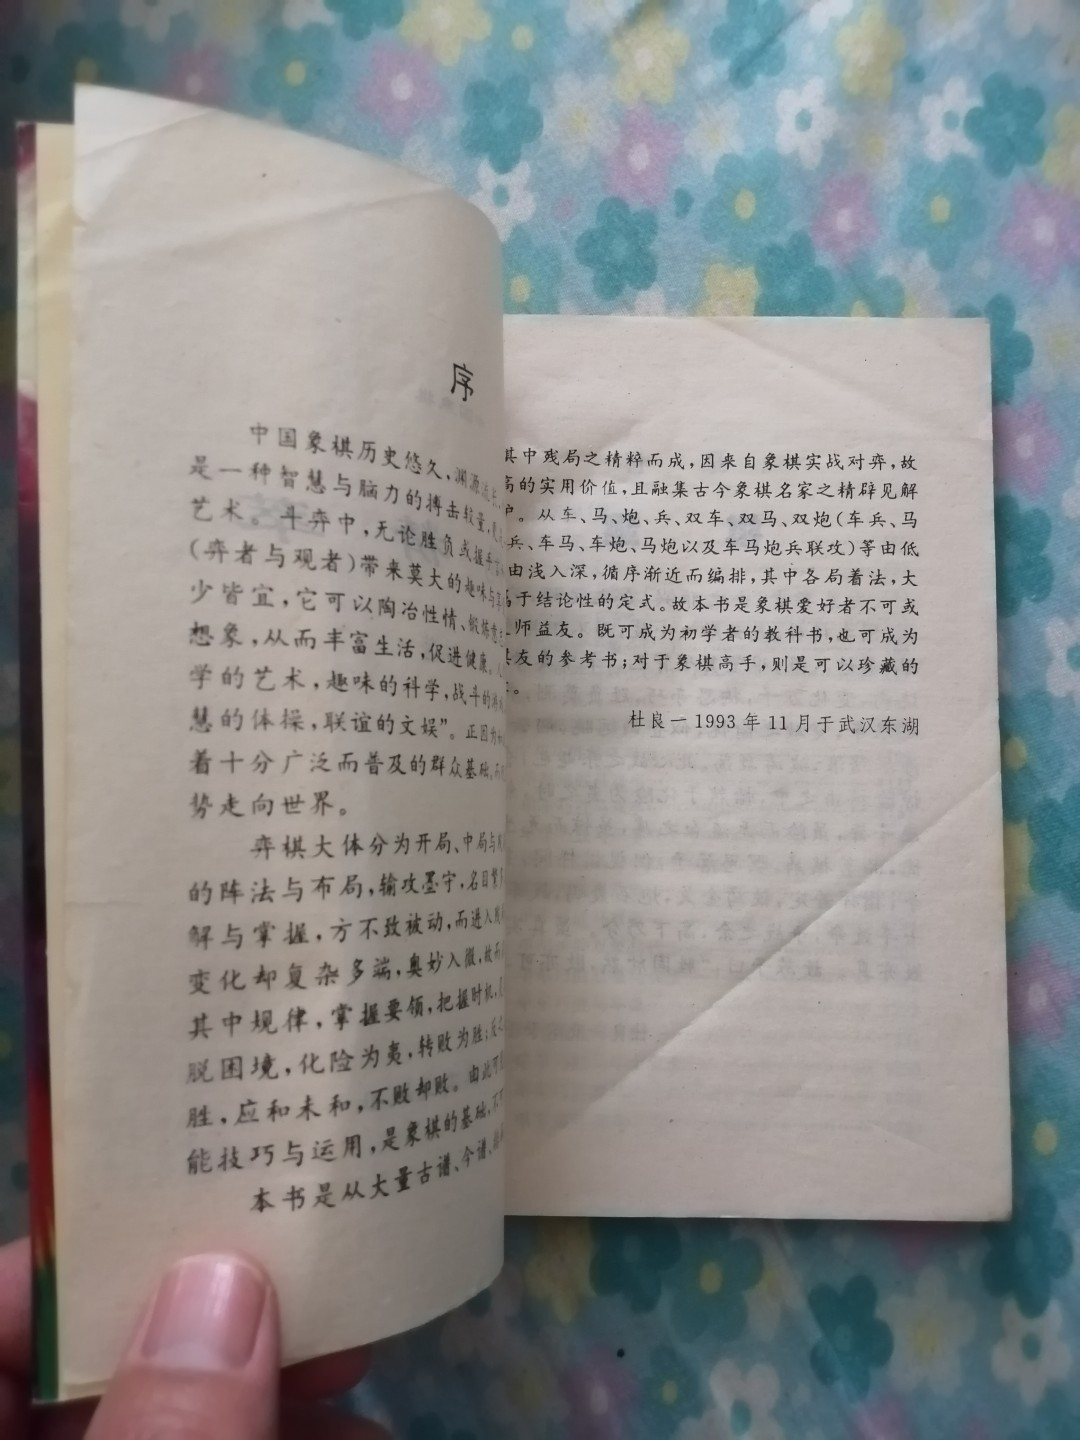 序
中国象棋历史悠久，渊源流
是一种智慧与脑力的搏击较量，
艺术。斗弈中，无论胜负或握手
(弈者与观者)带来莫大的趣味与
少皆宜，它可以陶冶性情、锻炼意
想象，从而丰富生活，促进健康。
学的艺术，趣味的科学，战斗的游
慧的体操，联谊的文娱”。正因为
着十分广泛而普及的群众基础，而
势走向世界。
弈棋大体分为开局、中局与
的阵法与布局，输攻墨守，名目繁
解与掌握，方不致被动，而进入
变化却复杂多端，奥妙入微，故而
其中规律，掌握要领，把握时机，
脱困境，化险为夷，转败为胜；反之
胜，应和未和，不败却败。由此可
能技巧与运用，是象棋的基础，不可
本书是从大量古谱、今谱、
其中残局之精粹而成，因来自象棋实战对弈，故
高的实用价值，且融集古今象棋名家之精辟见解
。从车、马、炮、兵、双车、双马、双炮(车兵、马
兵、车马、车炮、马炮以及车马炮兵联攻)等由低
由浅入深，循序渐近而编排，其中各局着法，大
于结论性的定式。故本书是象棋爱好者不可或
师益友。既可成为初学者的教科书，也可成为
友的参考书；对于象棋高手，则是可以珍藏的
。
杜良一1993年11月于武汉东湖